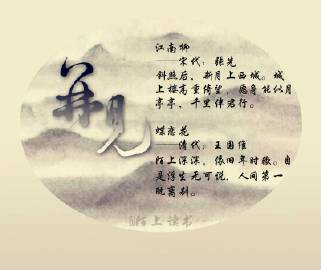 见
江南柳
——宋代：张先
斜照后，新月上西城。城
上楼高重倚望，愿身能似月
亭亭，千里伴君行。
蝶恋花
——清代：王国维
陌上深深，依旧年时辙。自
是浮生无可说，人间第一
耽离别。
陌上读书